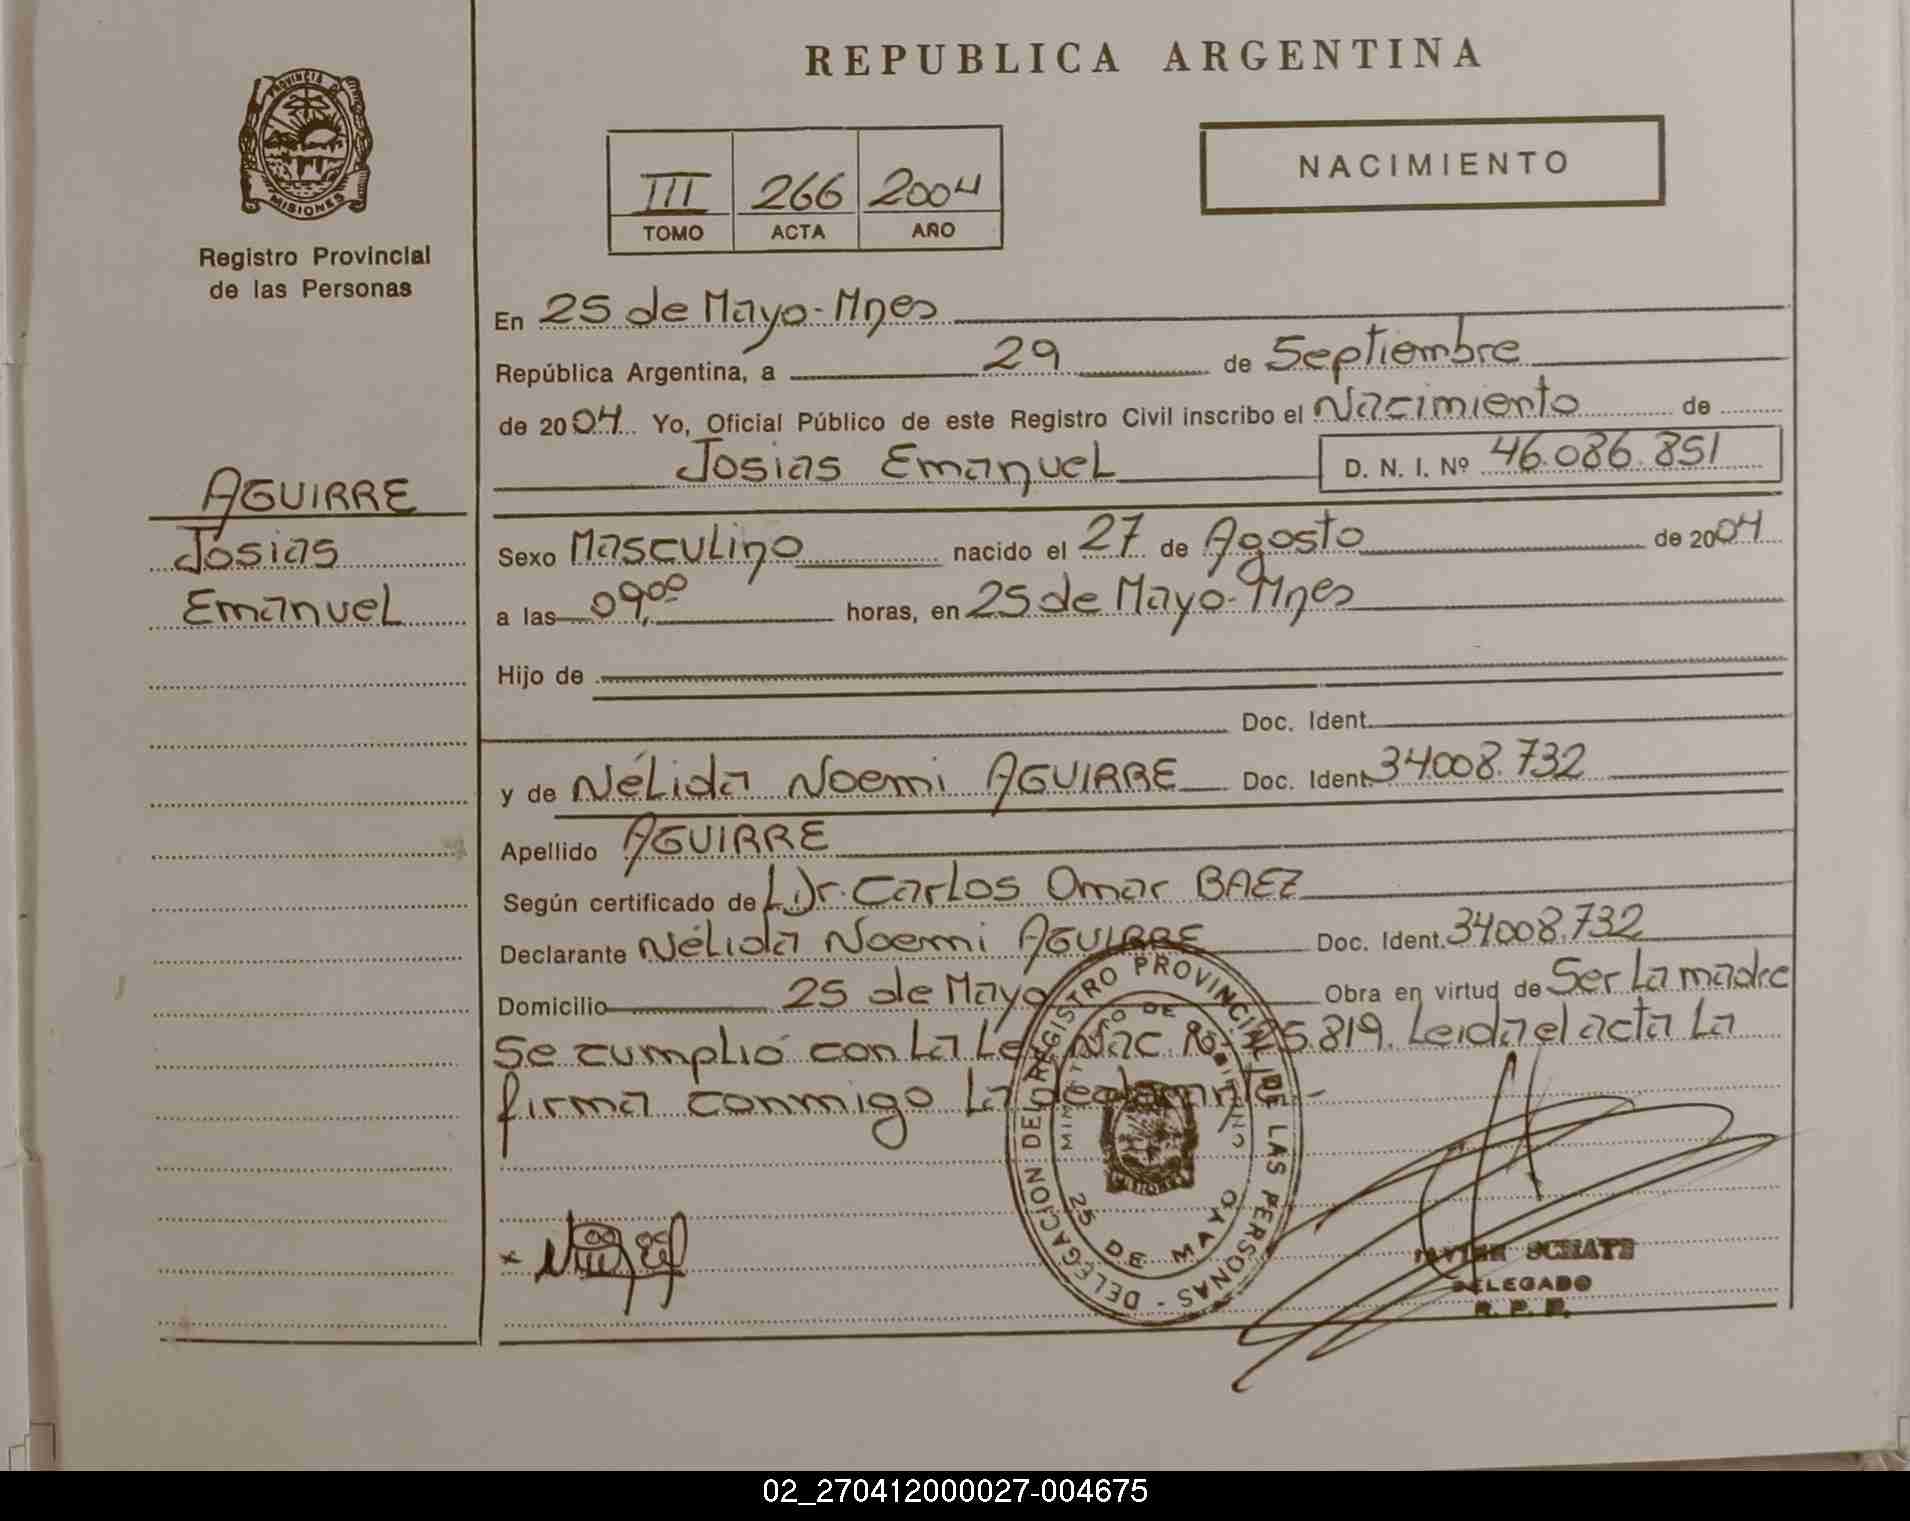 REPUBLICA ARGENTINA
PROVINCIA DE
MISIONES
Registro Provincial
de las Personas
III 266 2004
TOMO ACTA AÑO
NACIMIENTO
AGUIRRE
Josias
Emanuel
En 25 de Mayo-Mnes
República Argentina, a 29 de Septiembre
de 2004 Yo, Oficial Público de este Registro Civil inscribo el Nacimiento de
Josias Emanuel D. N. I. Nº 46.086.851
Sexo Masculino nacido el 27 de Agosto de 2004
a las 09,00 horas, en 25 de Mayo-Mnes
Hijo de
Doc. Ident.
y de Nélida Noemi AGUIRRE Doc. Ident. 34.008.732
Apellido AGUIRRE
Según certificado de Dr. Carlos Omar BAEZ
Declarante Nélida Noemi AGUIRRE Doc. Ident. 34.008.732
Domicilio 25 de Mayo Obra en virtud de Ser La madre
Se cumplió con La Ley Nac. Nº 25.819. Leida el acta La
firma conmigo La declarante.-
DELEGACION DEL REGISTRO PROVINCIAL DE LAS PERSONAS -
MINISTERIO DE GOBIERNO
25 DE MAYO
JAVIER SCHATZ
DELEGADO
R. P. P.
02_270412000027-004675